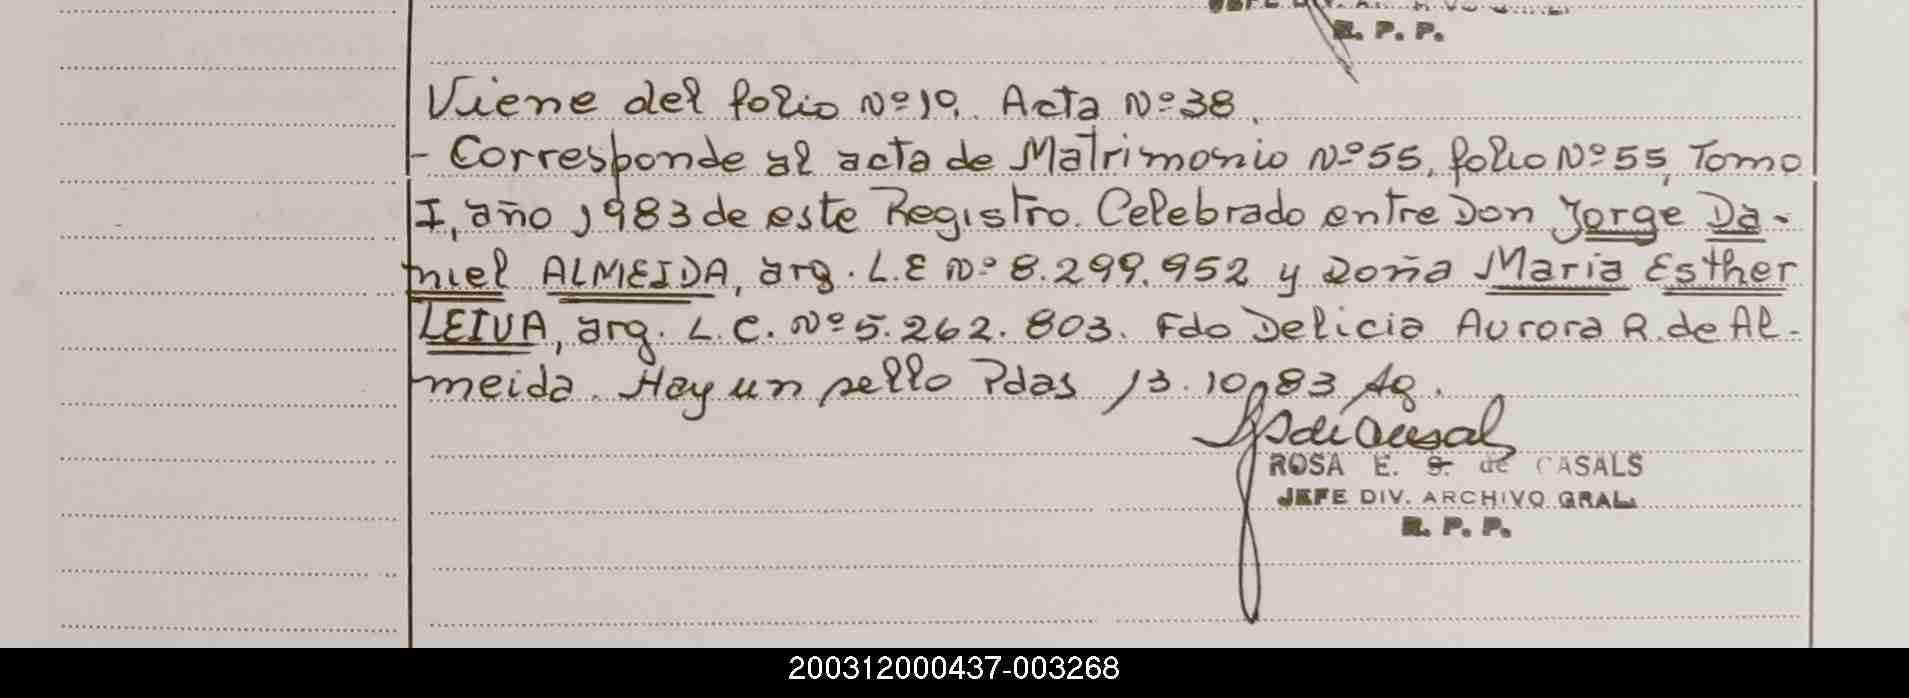 R. P. P.
Viene del folio Nº 19. Acta Nº 38.
- Corresponde al acta de Matrimonio Nº 55, folio Nº 55, Tomo
I, año 1983 de este Registro. Celebrado entre Don Jorge Da-
niel ALMEIDA, arg. L.E Nº 8.299.952 y Doña Maria Esther
LEIVA, arg. L.C. Nº 5.262.803. Fdo Delicia Aurora R. de Al-
meida. Hay un sello Pdas 13.10.83 Ag.
ROSA E. S. de CASALS
JEFE DIV. ARCHIVO GRAL.
R. P. P.
200312000437-003268